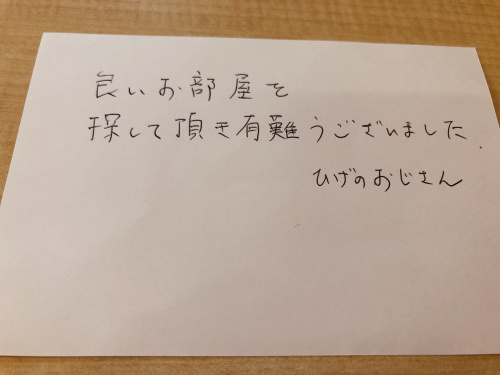 良いお部屋を
探して頂き有難うございました.
ひげのおじさん